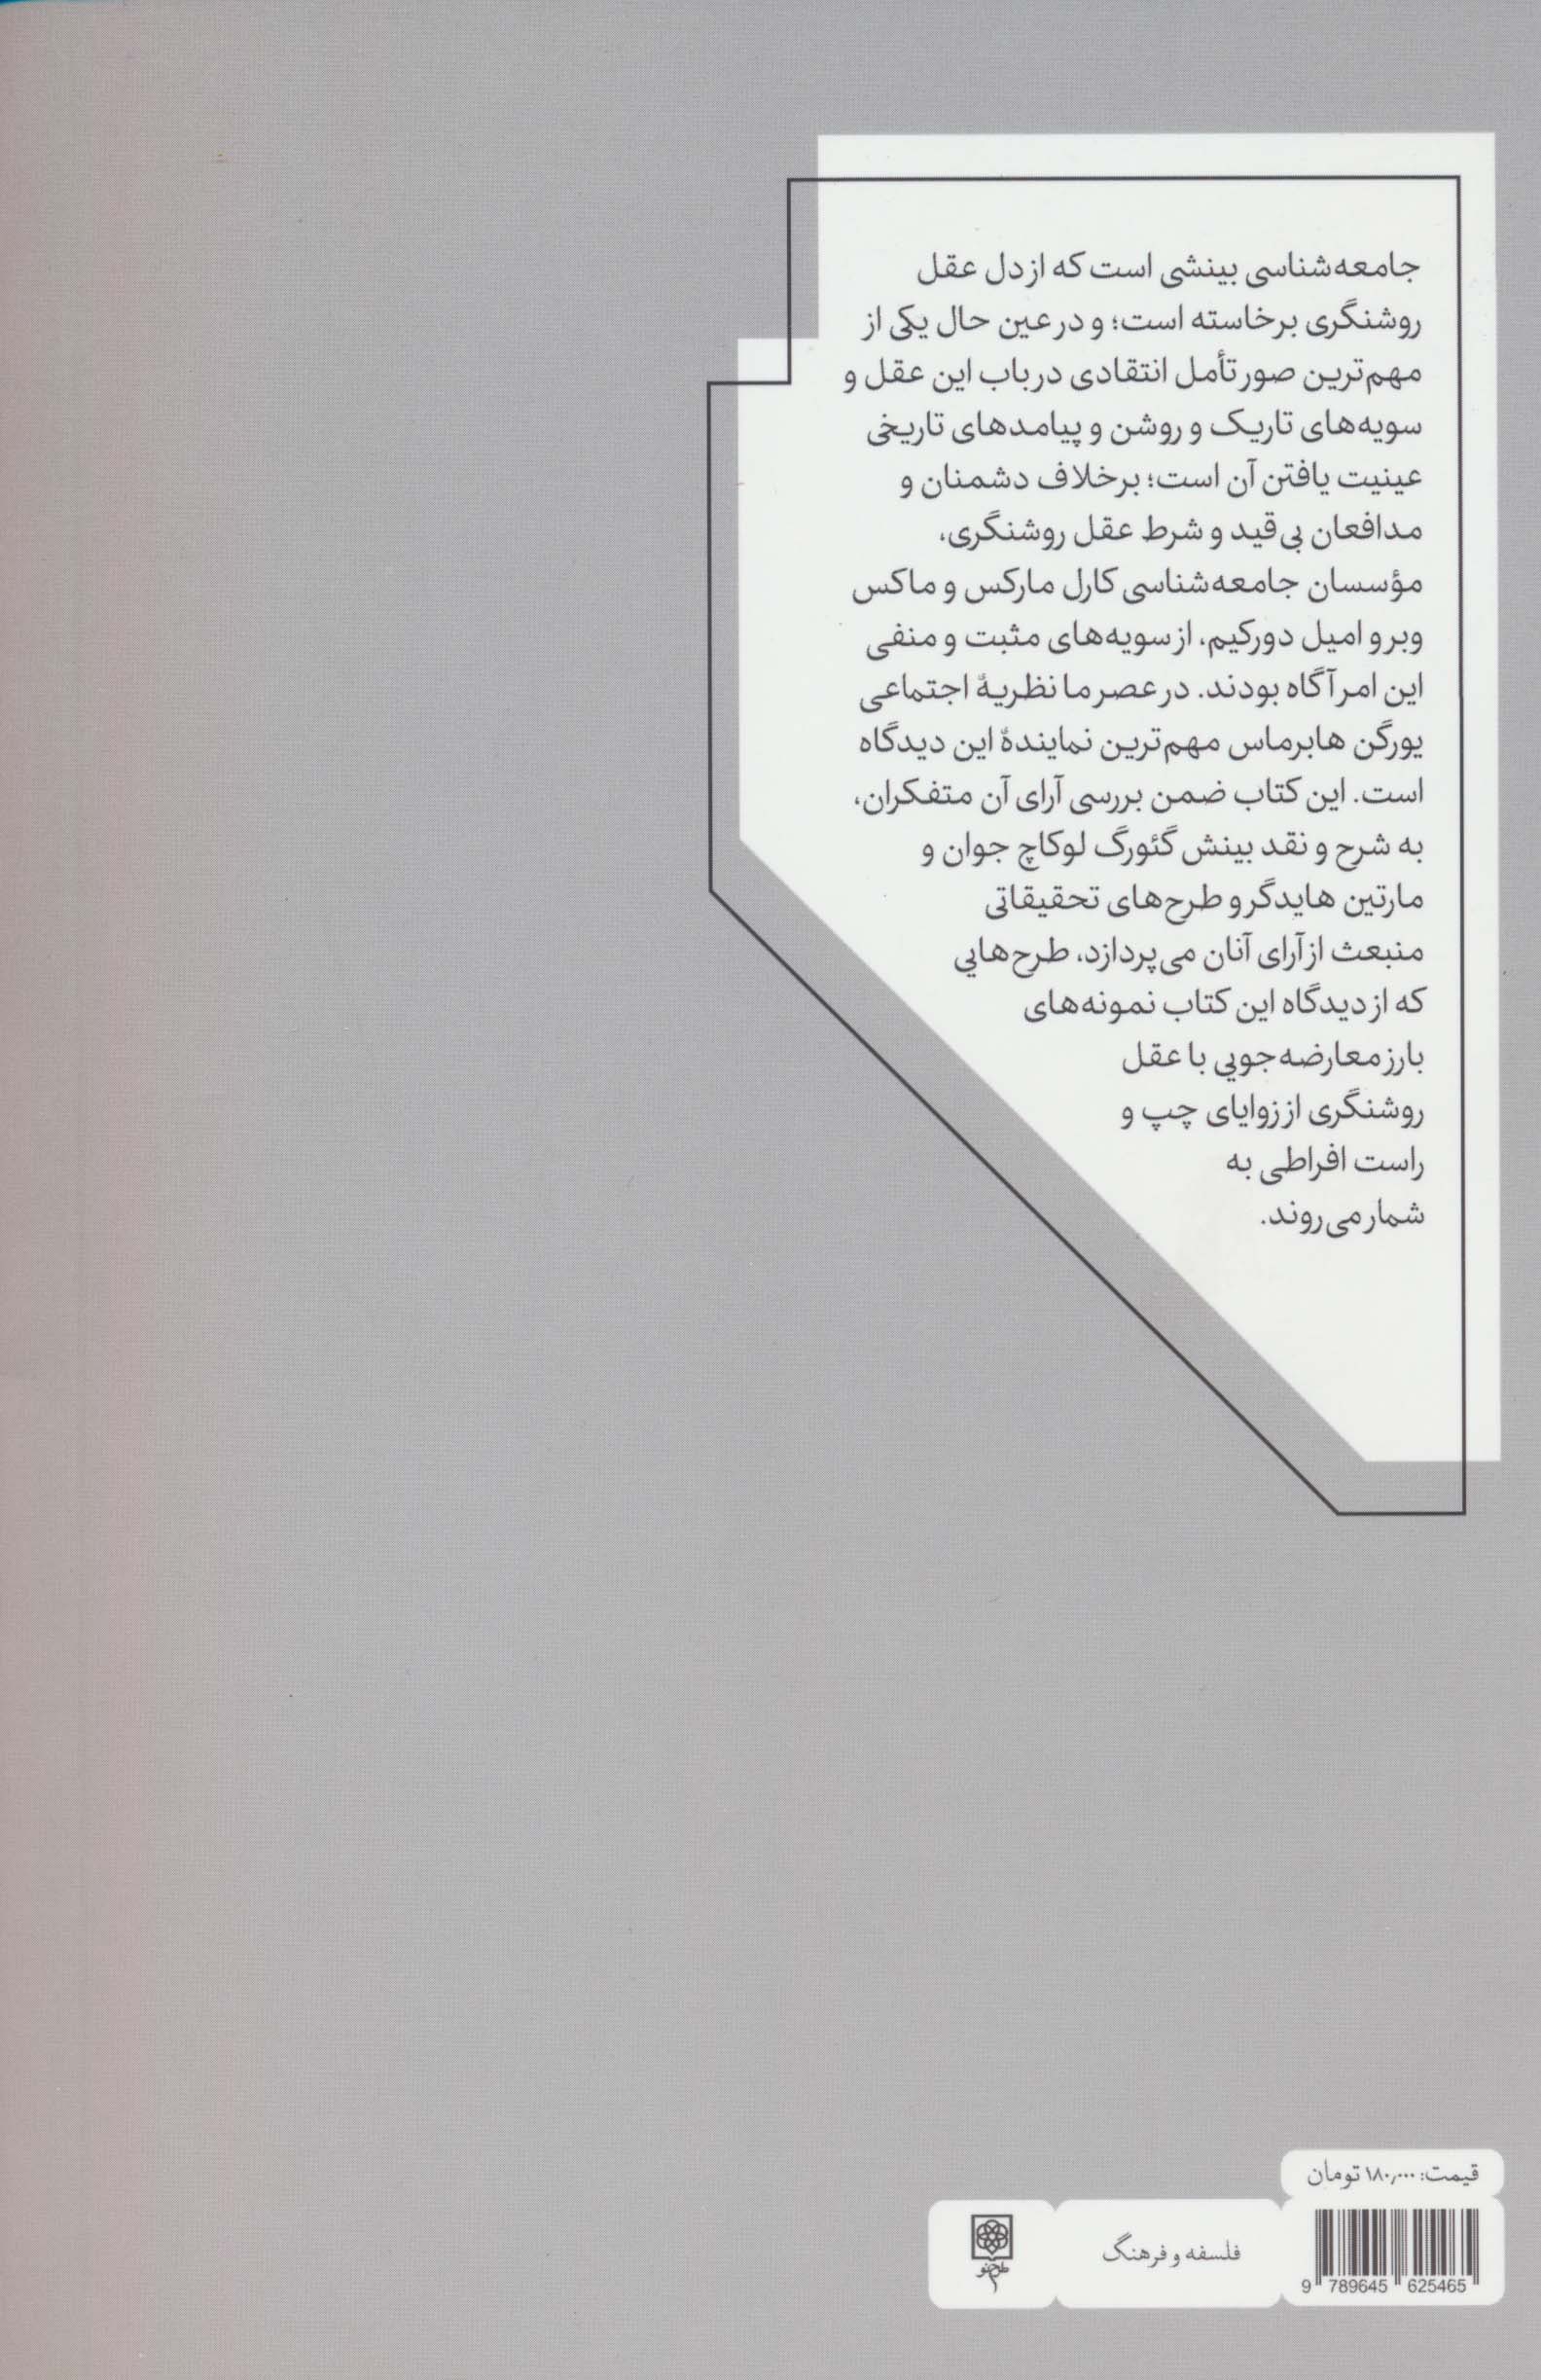 جامعه‌شناسی بینشی است که از دل عقل
روشنگری برخاسته است؛ و در عین حال یکی از
مهم‌ترین صور تأمل انتقادی در باب این عقل و
سویه‌های تاریک و روشن و پیامدهای تاریخی
عینیت یافتن آن است؛ برخلاف دشمنان و
مدافعان بی‌قید و شرط عقل روشنگری،
مؤسسان جامعه‌شناسی کارل مارکس و ماکس
وبر و امیل دورکیم، از سویه‌های مثبت و منفی
این امر آگاه بودند. در عصر ما نظریهٔ اجتماعی
یورگن هابرماس مهم‌ترین نمایندهٔ این دیدگاه
است. این کتاب ضمن بررسی آرای آن متفکران،
به شرح و نقد بینش گئورگ لوکاچ جوان و
مارتین هایدگر و طرح‌های تحقیقاتی
منبعث از آرای آنان می‌پردازد، طرح‌هایی
که از دیدگاه این کتاب نمونه‌های
بارز معارضه‌جویی با عقل
روشنگری از زوایای چپ و
راست افراطی به
شمار می‌روند.
قیمت: ۱۸۰٫۰۰۰ تومان
فلسفه و فرهنگ
طرح نو
9 789645 625465